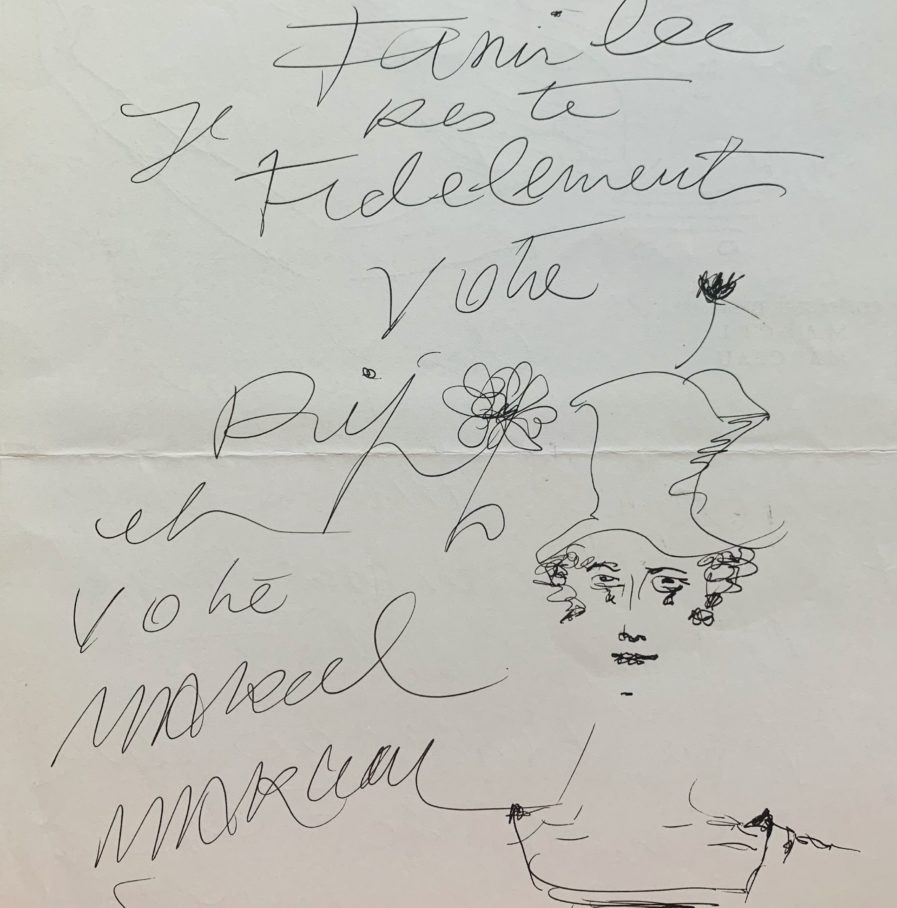 Famille
Je reste
Fidèlement
Votre
Bip
et
Votre
Marcel
Marceau